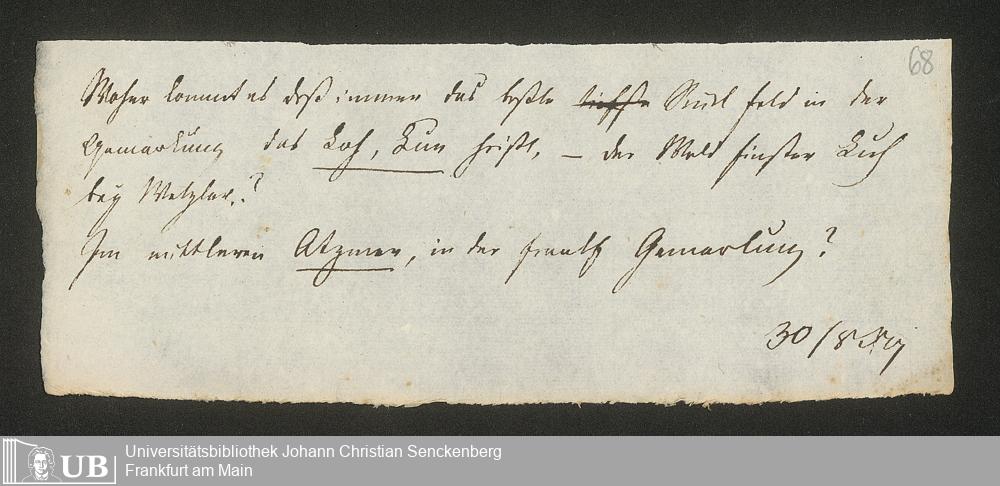 68
Woher kommt es daß immer das beste tiefste Stück feld in der
Gemarkung das Loh, Lun heißt, – der Wald finster Luch
bey Wetzlar.?
Im mittleren Atzmer, in der Gemarkung?
30/8
Universitätsbibliothek Johann Christian Senckenberg
Frankfurt am Main
UB